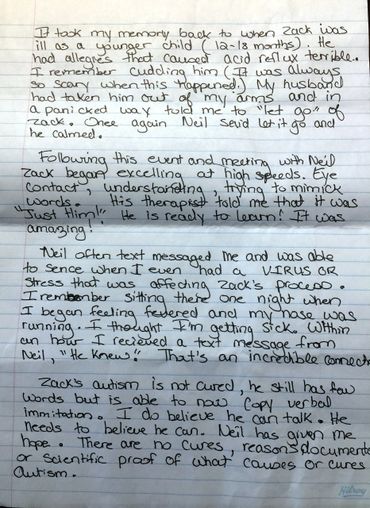 It took my memory back to when Zack was
ill as a younger child (12-18 months). He
had allegies that caused acid reflux terrible.
I remember cuddling him (It was always
so scary when this happened.) My husband
had taken him out of my arms and in
a panicked way told me to "let go" of
Zack. Once again Neil said let it go and
he calmed.
Following this event and meeting with Neil
Zack began excelling at high speeds. Eye
contact, understanding, trying to mimick
words. His therapist told me that it was
"Just Him!" He is ready to learn! It was
amazing!
Neil often text messaged me and was able
to sence when I even had a VIRUS OR
stress that was affecting Zack's process.
I remember sitting there one night when
I began feeling fevered and my nose was
running. I thought I'm getting sick. Within
an hour I recieved a text message from
Neil, "He Knew." That's an incredible connect
Zack's autism is not cured, he still has few
words but is able to now copy verbal
immitation. I do believe he can talk. He
needs to believe he can. Neil has given me
hope. There are no cures, reasons documente
or scientific proof of what causes or cures
autism.
Hilroy